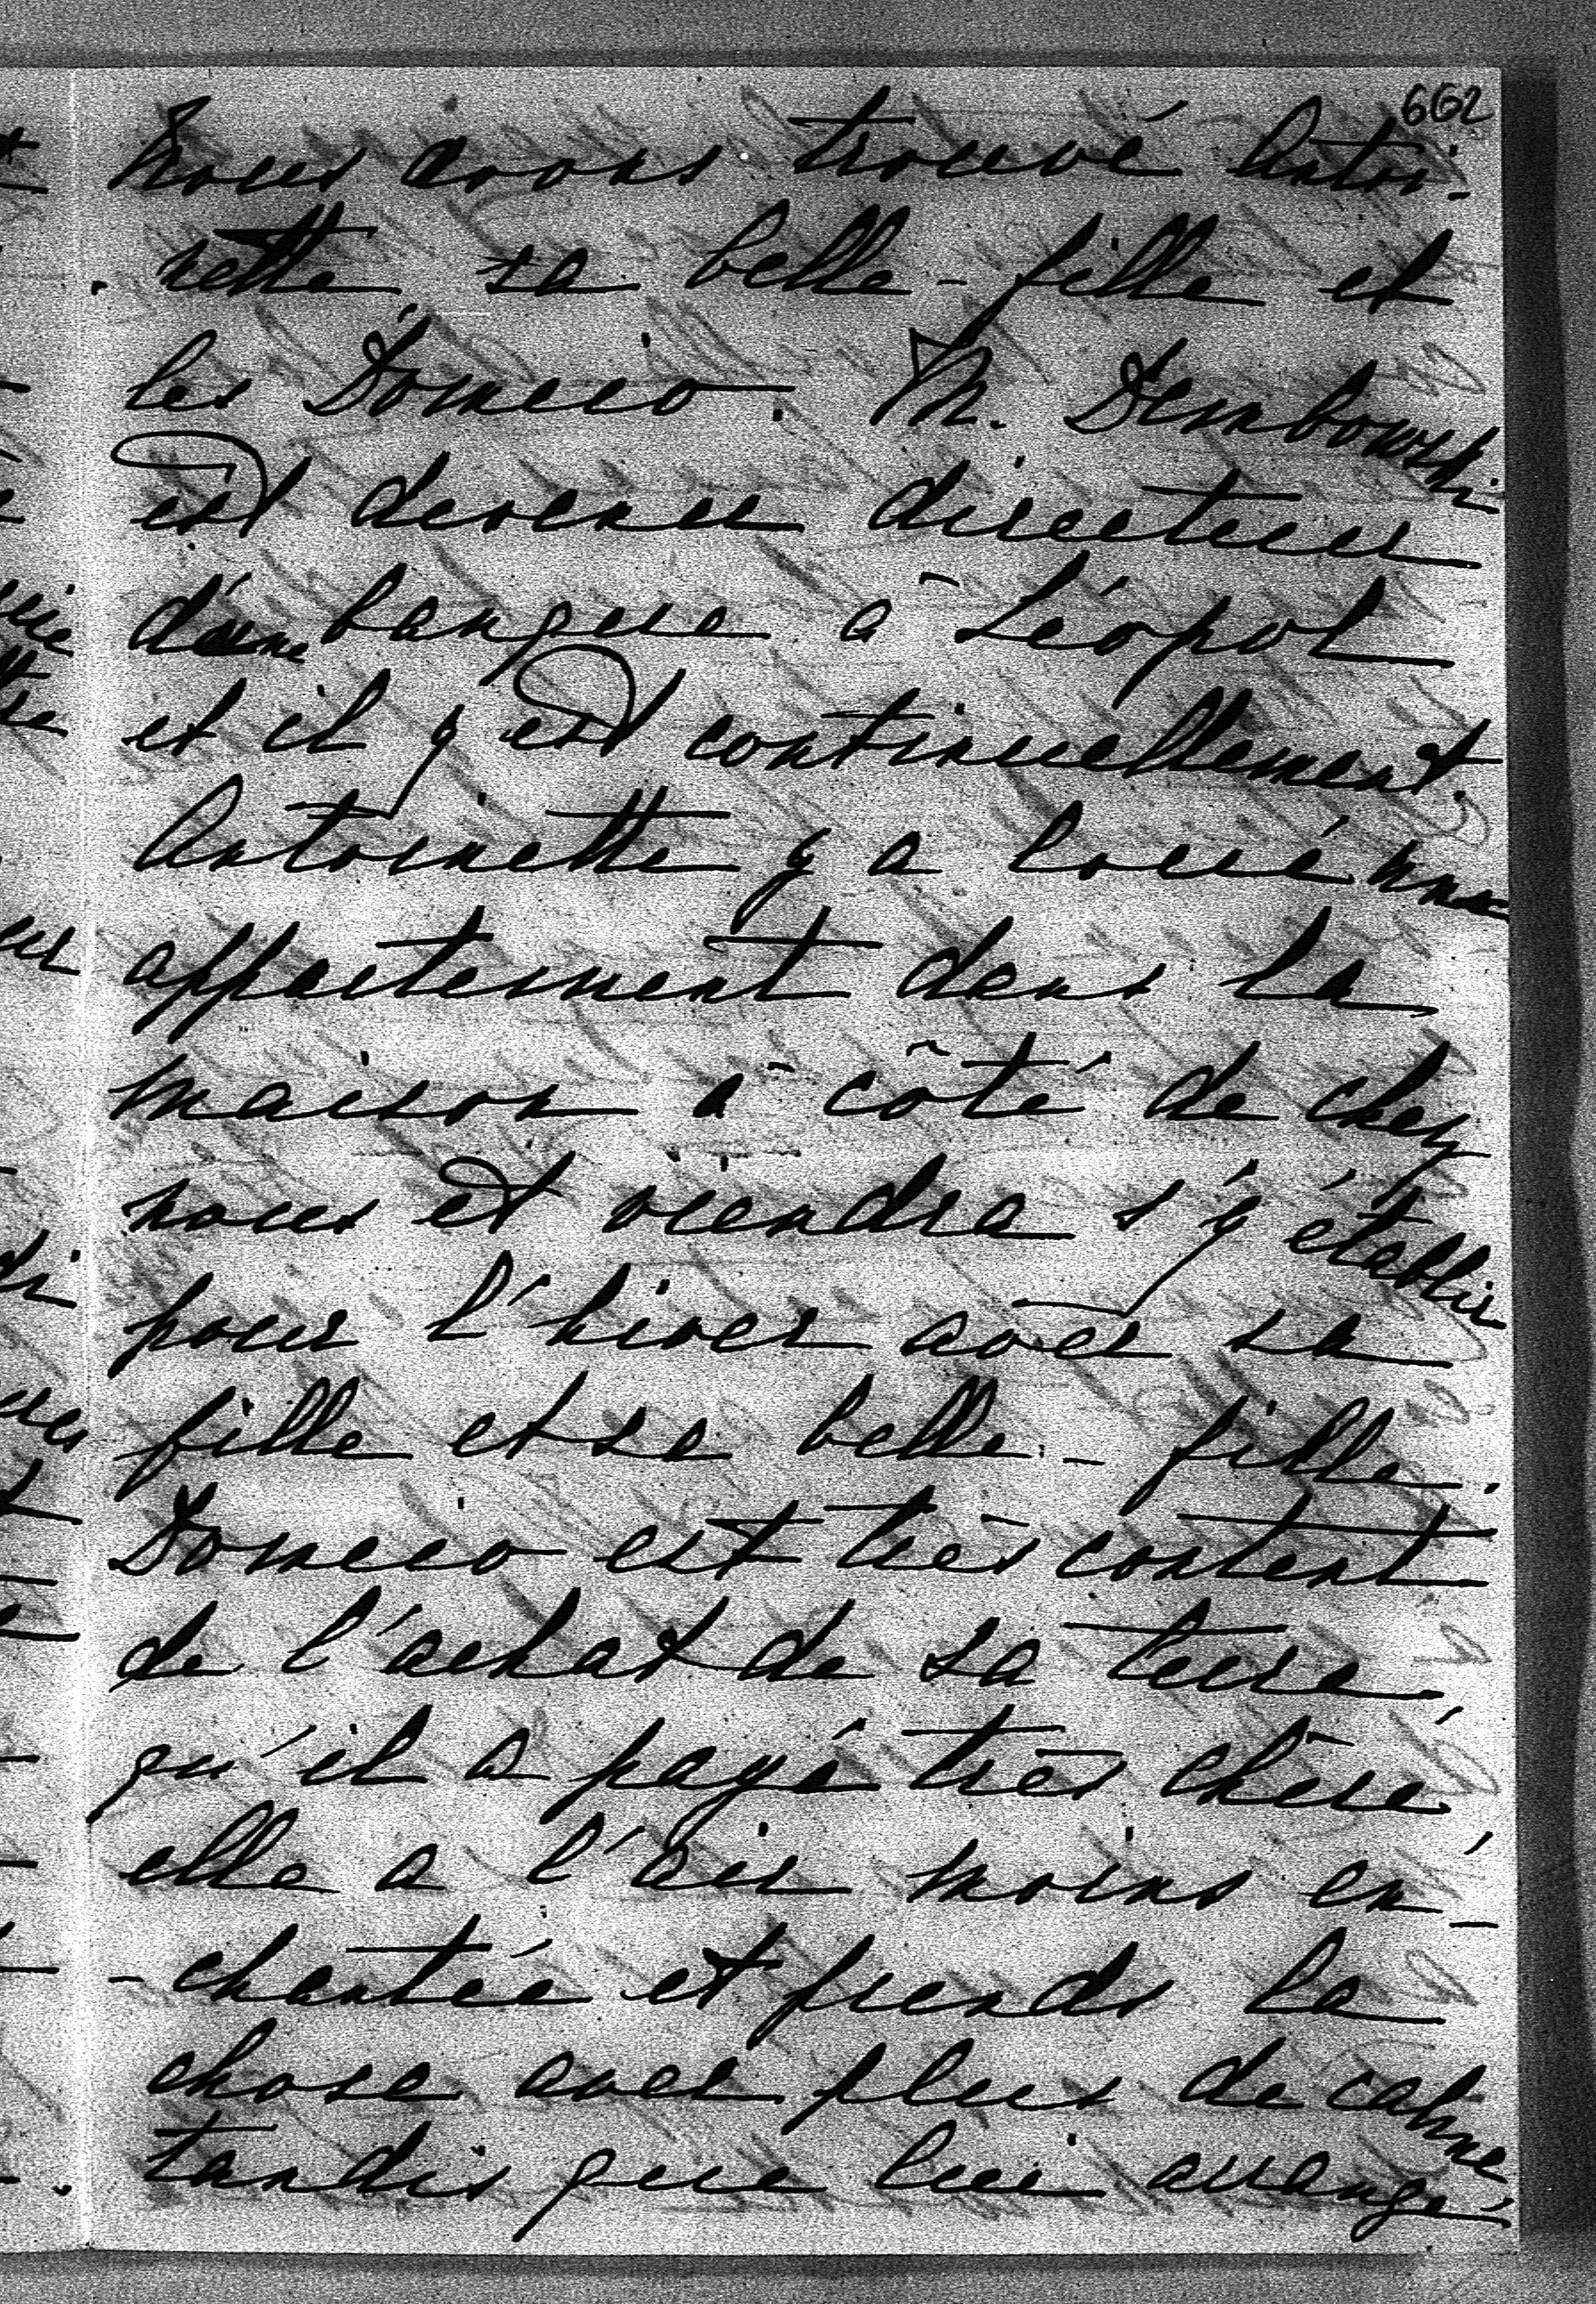 662
Nous avons trouvé Antoi-
nette, sa belle-fille et
les Domcio. M. Dembowski
est devenu directeur
d'une banque à Léopol
et il y est continuellement.
Antoinette y a loué un
appartement dans la
maison à côté de chez
nous et viendra s'y établir
pour l'hiver avec sa
fille et sa belle-fille.
Domcio est très content
de l'achat de sa terre,
qu'il a payé très chère,
elle a l'air moins en-
-chantée et prends la
chose avec plus de calme
tandis que lui arrange